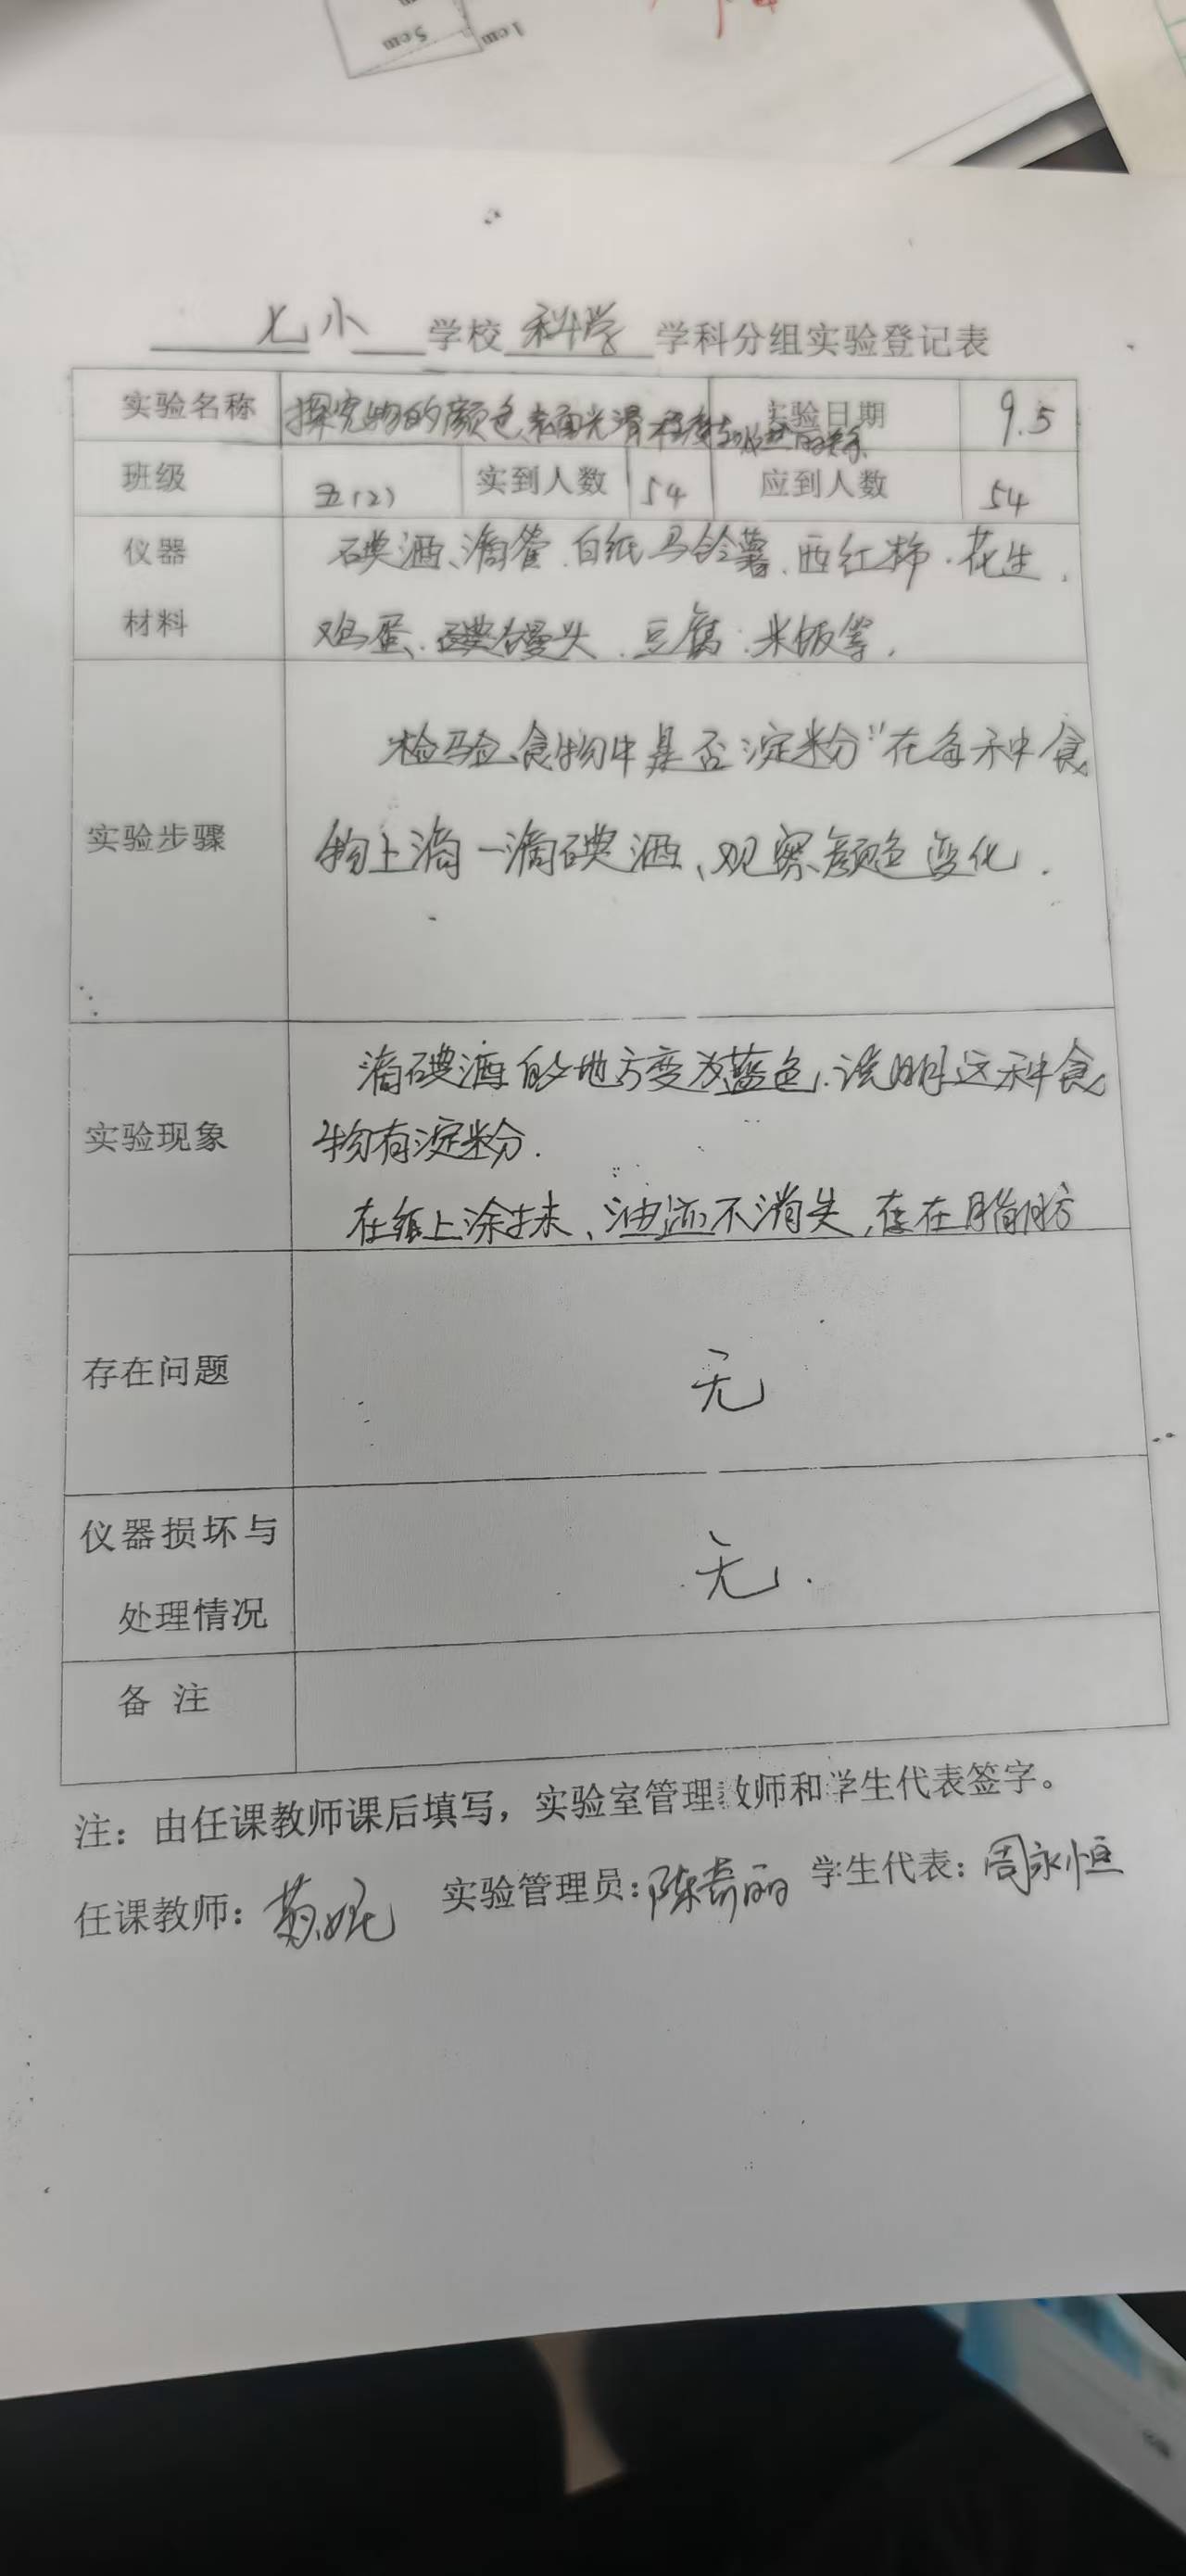 5cm
1cm
七小 学校 科学 学科分组实验登记表
实验名称 探究物的颜色、表面光滑程度与吸热的关系 实验日期 9.5
班级 五(2) 实到人数 54 应到人数 54
仪器 碘酒、滴管、白纸 马铃薯、西红柿、花生、
材料 鸡蛋、馒头、豆腐、米饭等。
检验食物中是否淀粉"在每种食
实验步骤 物上滴一滴碘酒、观察颜色变化.
滴碘酒的地方变为蓝色.说明这种食
实验现象 物有淀粉.
在纸上涂抹、油迹不消失,存在脂肪
存在问题 无
仪器损坏与
处理情况 无.
备 注
注：由任课教师课后填写，实验室管理教师和学生代表签字。
任课教师： 实验管理员：陈 丽 学生代表：周永恒